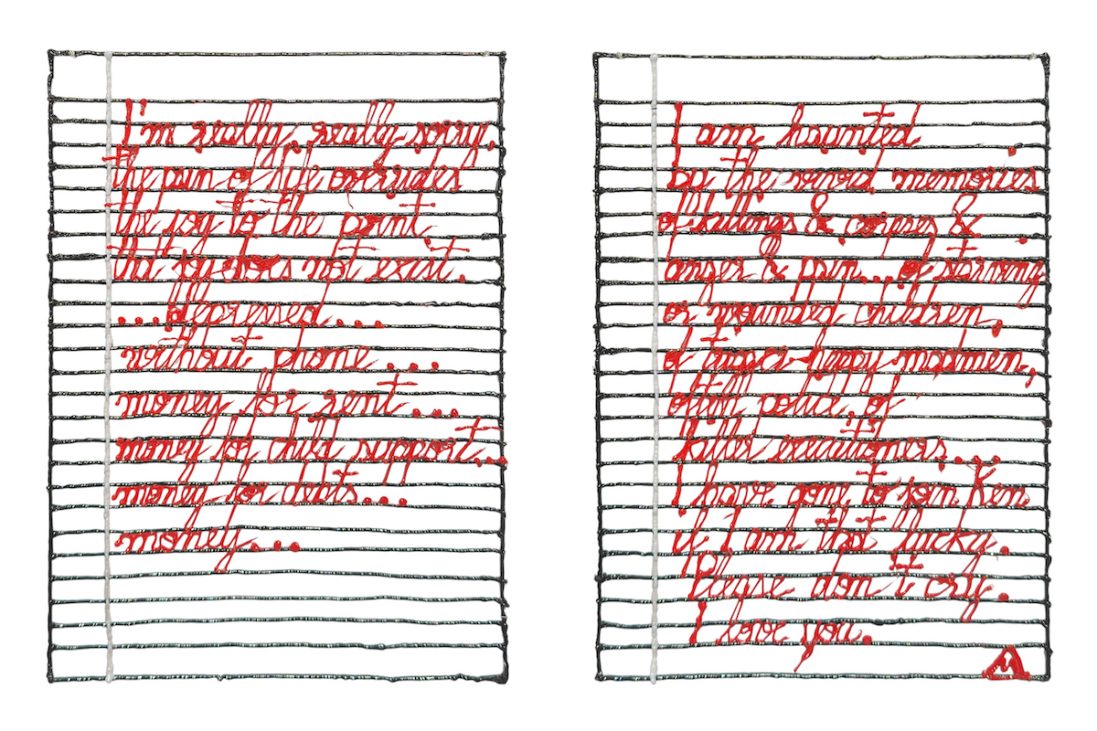 I'm really, really sorry.
the pain of life overrides
the joy to the point
that joy does not exist.
...depressed....
without phone....
money for rent....
money for child support...
money for debts....
money...
I am haunted
by the vivid memories
of killings & corpses &
anger & pain...of starving
or wounded children,
of trigger-happy madmen,
often police, of
killer executioners....
I have gone to join Ken
if I am that lucky.
Please don't cry.
I love you.